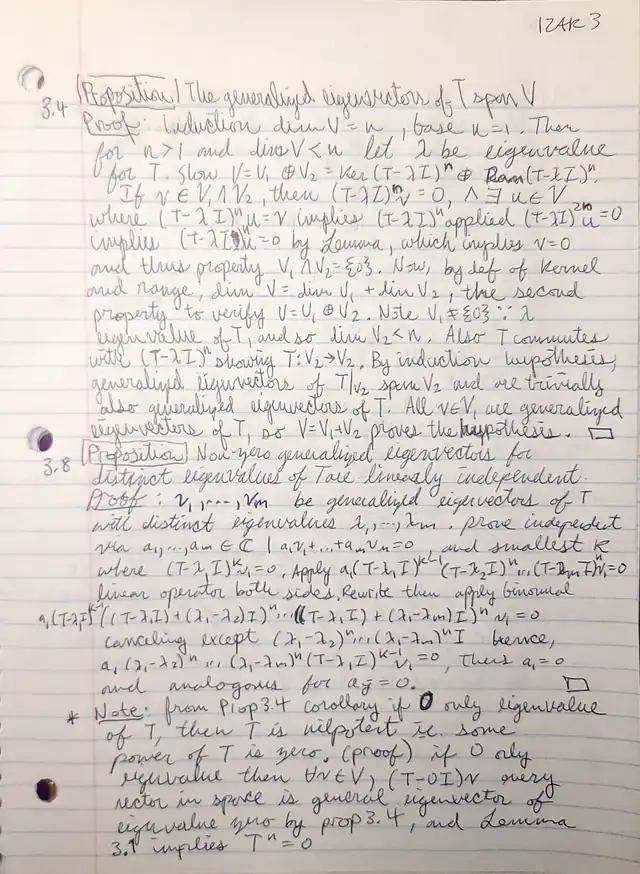 12AK 3
3.4 [Proposition] The generalized eigenvectors of T span V
Proof: Induction dim V = n, base n=1. Then
for n>1 and dim V < n let λ be eigenvalue
for T. Show V = V₁ ⊕ V₂ = Ker(T-λI)ⁿ ⊕ Ran(T-λI)ⁿ.
If v ∈ V₁ ∧ V₂, then (T-λI)ⁿv = 0, ∧ ∃ u ∈ V
where (T-λI)ⁿu = v, implies (T-λI)ⁿ applied (T-λI)²ⁿu = 0
implies (T-λI)ⁿu = 0 by Lemma, which implies v = 0
and thus property V₁ ∧ V₂ = {0}. Now, by def of kernel
and range, dim V = dim V₁ + dim V₂, the second
property to verify V = V₁ ⊕ V₂. Note V₁ ≠ {0} ∵ λ
eigenvalue of T, and so dim V₂ < n. Also T commutes
with (T-λI)ⁿ showing T: V₂ → V₂. By induction hypothesis,
generalized eigenvectors of T|V₂ span V₂ and are trivially
also generalized eigenvectors of T. All v ∈ V₁ are generalized
eigenvectors of T, so V = V₁ + V₂ proves the hypothesis. □
3.8 [Proposition] Non-zero generalized eigenvectors for
distinct eigenvalues of T are linearly independent.
Proof: v₁, ..., vm be generalized eigenvectors of T
with distinct eigenvalues λ₁, ..., λm. prove independent
via a₁, ..., am ∈ ℂ | a₁v₁ + ... + amvm = 0, and smallest k
where (T-λ₁I)ᵏv₁ = 0. Apply a₁(T-λ₁I)ᵏ⁻¹(T-λ₂I)ⁿ...(T-λmI)ⁿv₁ = 0
linear operator both sides. Rewrite then apply binomial
a₁(T-λ₁I)ᵏ⁻¹((T-λ₁I) + (λ₁-λ₂)I)ⁿ...((T-λ₁I) + (λ₁-λm)I)ⁿ v₁ = 0
canceling except (λ₁-λ₂)ⁿ...(λ₁-λm)ⁿI hence,
a₁(λ₁-λ₂)ⁿ...(λ₁-λm)ⁿ(T-λ₁I)ᵏ⁻¹v₁ = 0, Thus a₁ = 0
and analogous for aj = 0. □
* Note: from Prop 3.4 corollary if 0 only eigenvalue
of T, then T is nilpotent i.e. some
power of T is zero. (proof) if 0 only
eigenvalue then ∀v ∈ V, (T-0I)v every
vector in space is general eigenvector of
eigenvalue zero by prop 3.4, and Lemma
3.1 implies Tⁿ = 0